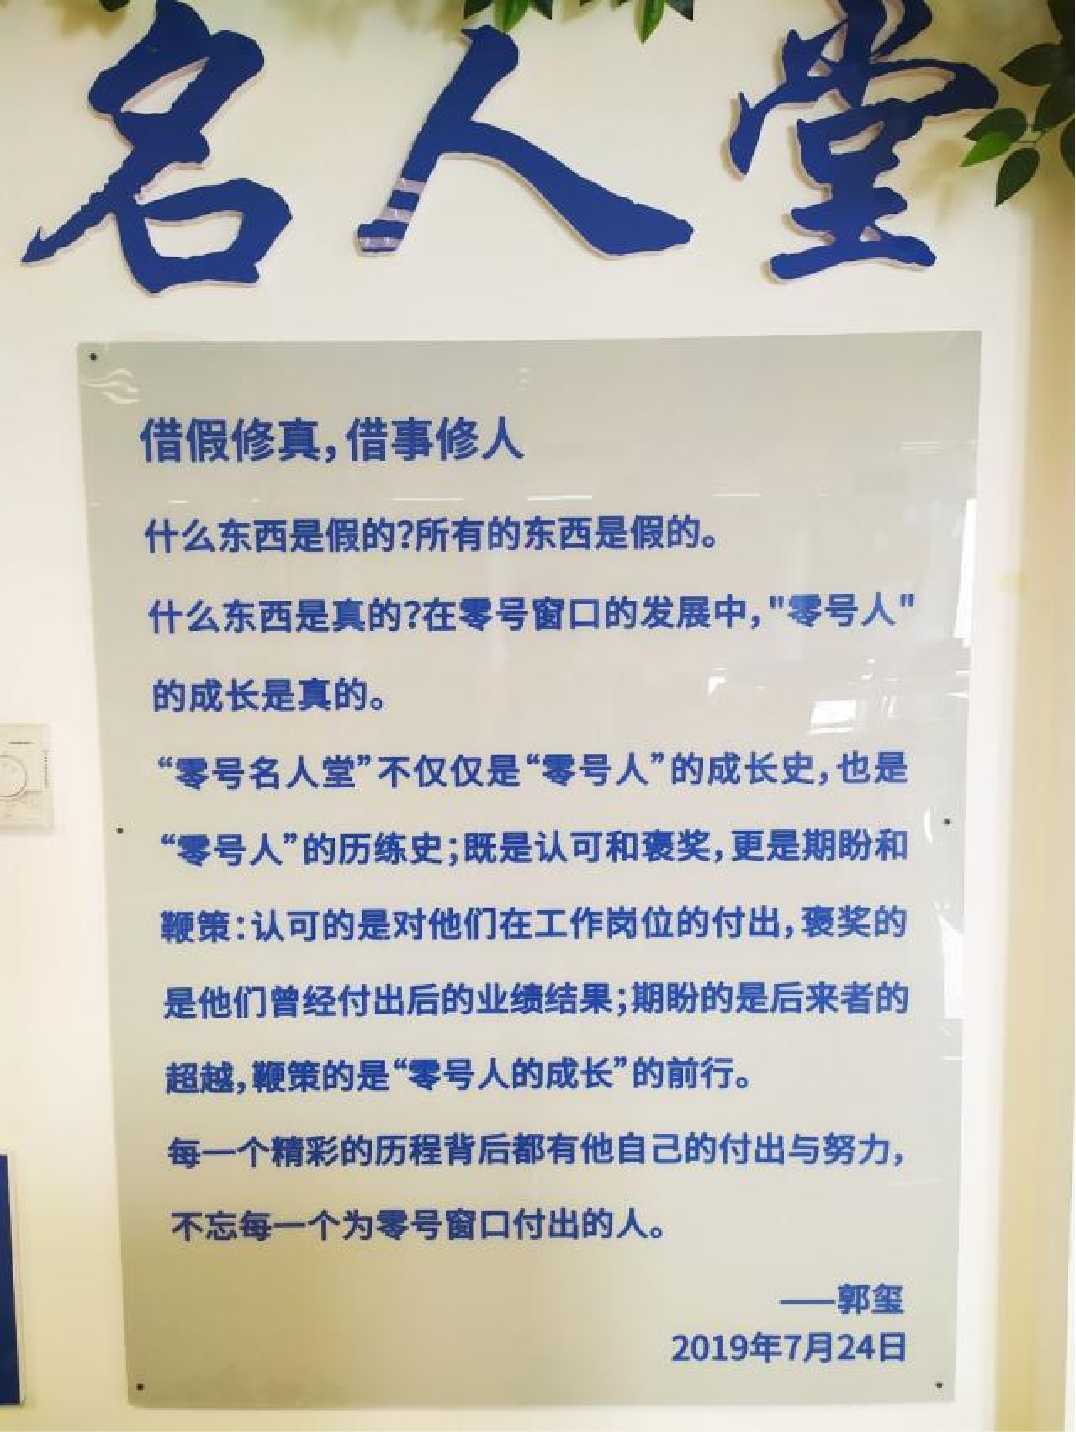 名人堂
借假修真，借事修人
什么东西是假的？所有的东西是假的。
什么东西是真的？在零号窗口的发展中，"零号人"
的成长是真的。
“零号名人堂”不仅仅是“零号人”的成长史，也是
“零号人”的历练史；既是认可和褒奖，更是期盼和
鞭策：认可的是对他们在工作岗位的付出，褒奖的
是他们曾经付出后的业绩结果；期盼的是后来者的
超越，鞭策的是“零号人的成长”的前行。
每一个精彩的历程背后都有他自己的付出与努力，
不忘每一个为零号窗口付出的人。
——郭玺
2019年7月24日